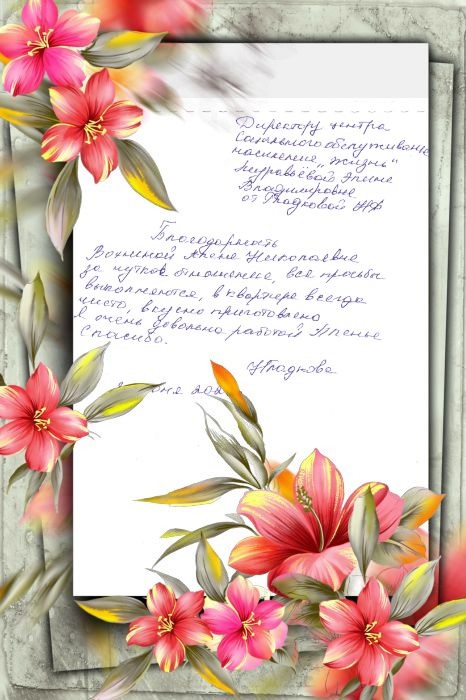 Директору центра
Социального обслуживание
население „Жизнь“
Муравьёвой Элине
Владимировне
от Гладковой НФ
Благодарность
Ворниной Алене Николаевне
за чуткое отношение, все просьбы
выполняются, в квартире всегда
чисто, вкусно приготовлено
Я очень довольна работой Алены
Спасибо.
НГладкова